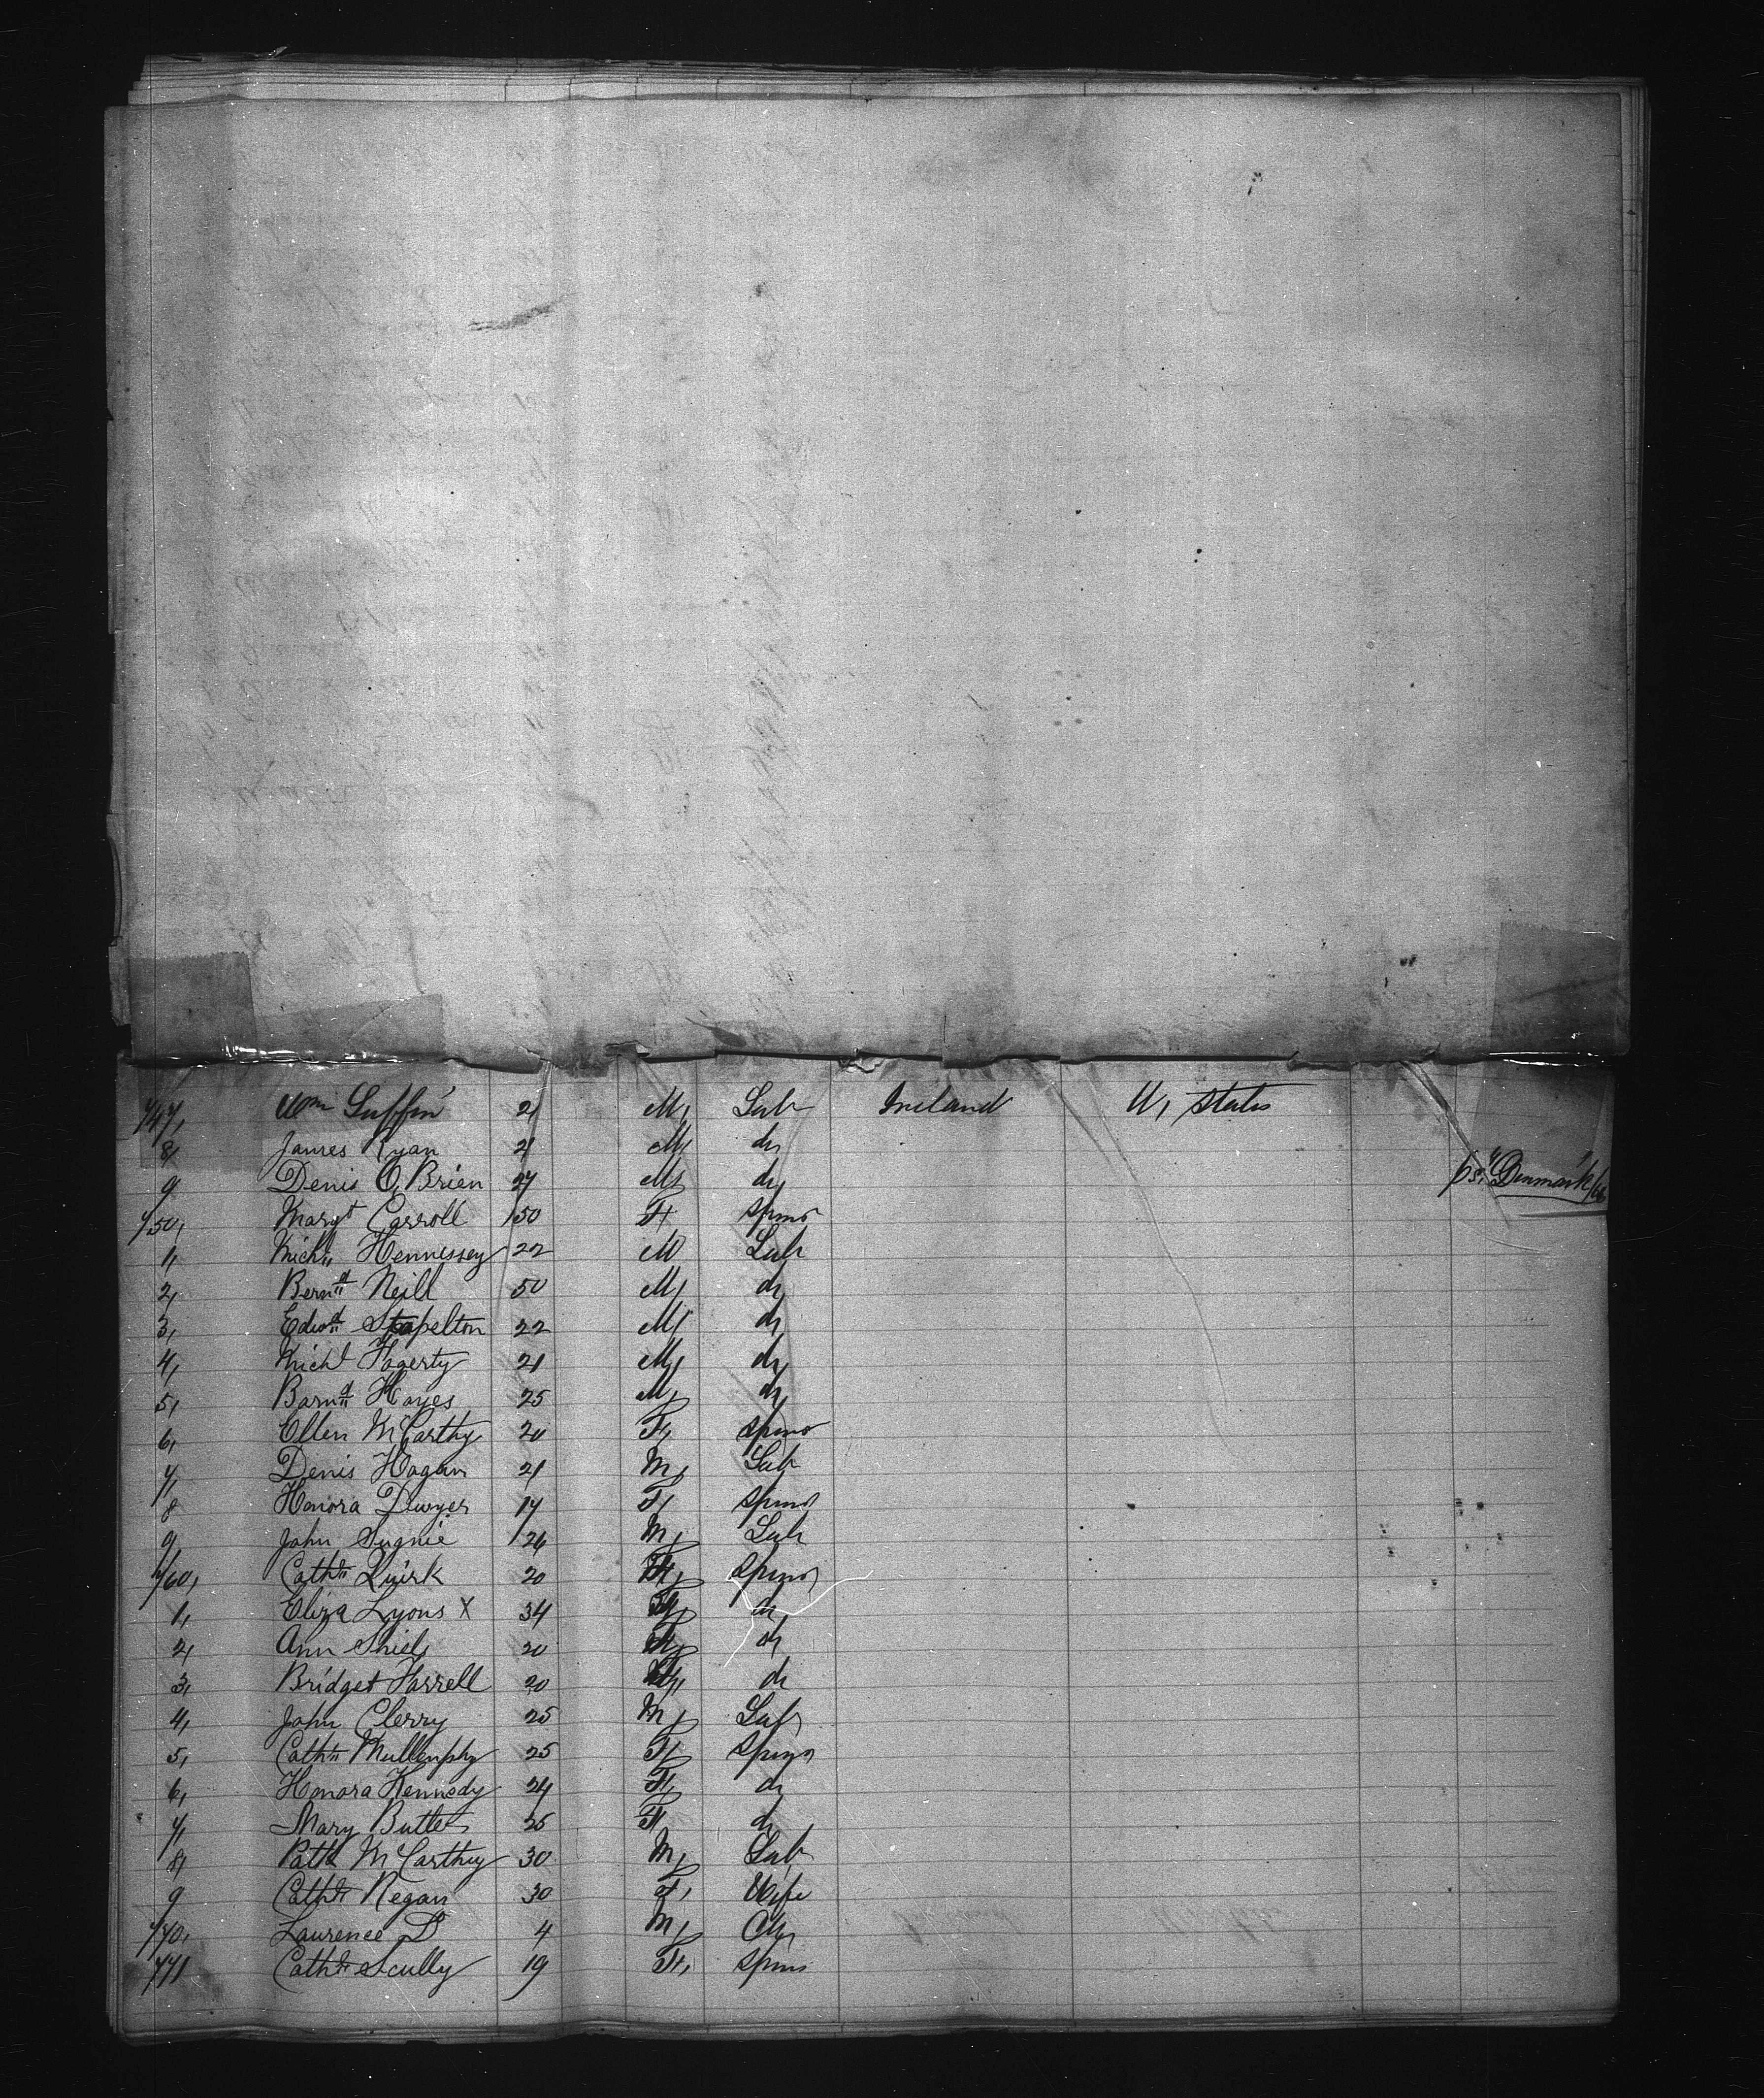 747, Wm Guffin 21 M, Lab Ireland U, States
8, James Ryan 21 M, do,
9 Denis O,Brien 27 M, do, ps, "Denmark"/66
750, Margt Carroll 50 F, Spins
1, Michl, Hennessey 22 M Lab
2, Bernd Neill 50 M, do,
3, Edwd Stapelton 22 M, do,
4, Michl Fogerty 21 M, do,
5, Barnd Hayes 25 M, do,
6, Ellen McCarthy 20 F, Spins
7, Denis Hogan 21 M, Lab
8 Honora Dwyer 17 F, Spins
9, John 26 M, Lab
760, Cathe Quirk 20 F, Spins
1, Eliza Lyons X 34 F, do,
2, Ann Shiels 20 F, do,
3, Bridget Farrell 20 F, do
4, John Clerry 25 M, Lab
5, Cathe Mullenphy 25 F, Spins
6, Honora Kennedy 24 F, do,
7, Mary Butler 25 F do,
8, Patk McCarthy 30 M, Lab
9 Cathe Regan 30 F, Wife
770, Laurence Do 4 M, Ch,
771 Cathe Scully 19 F, Spins